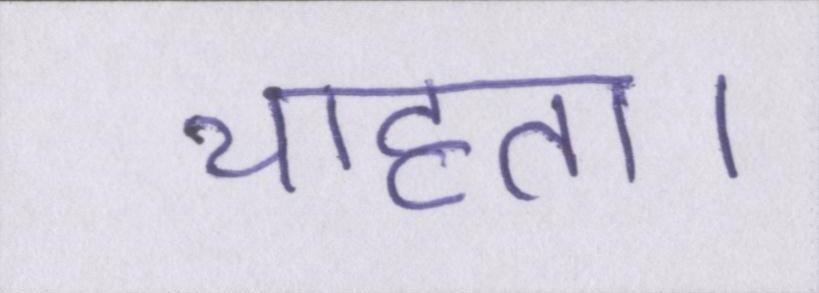 चाहता।